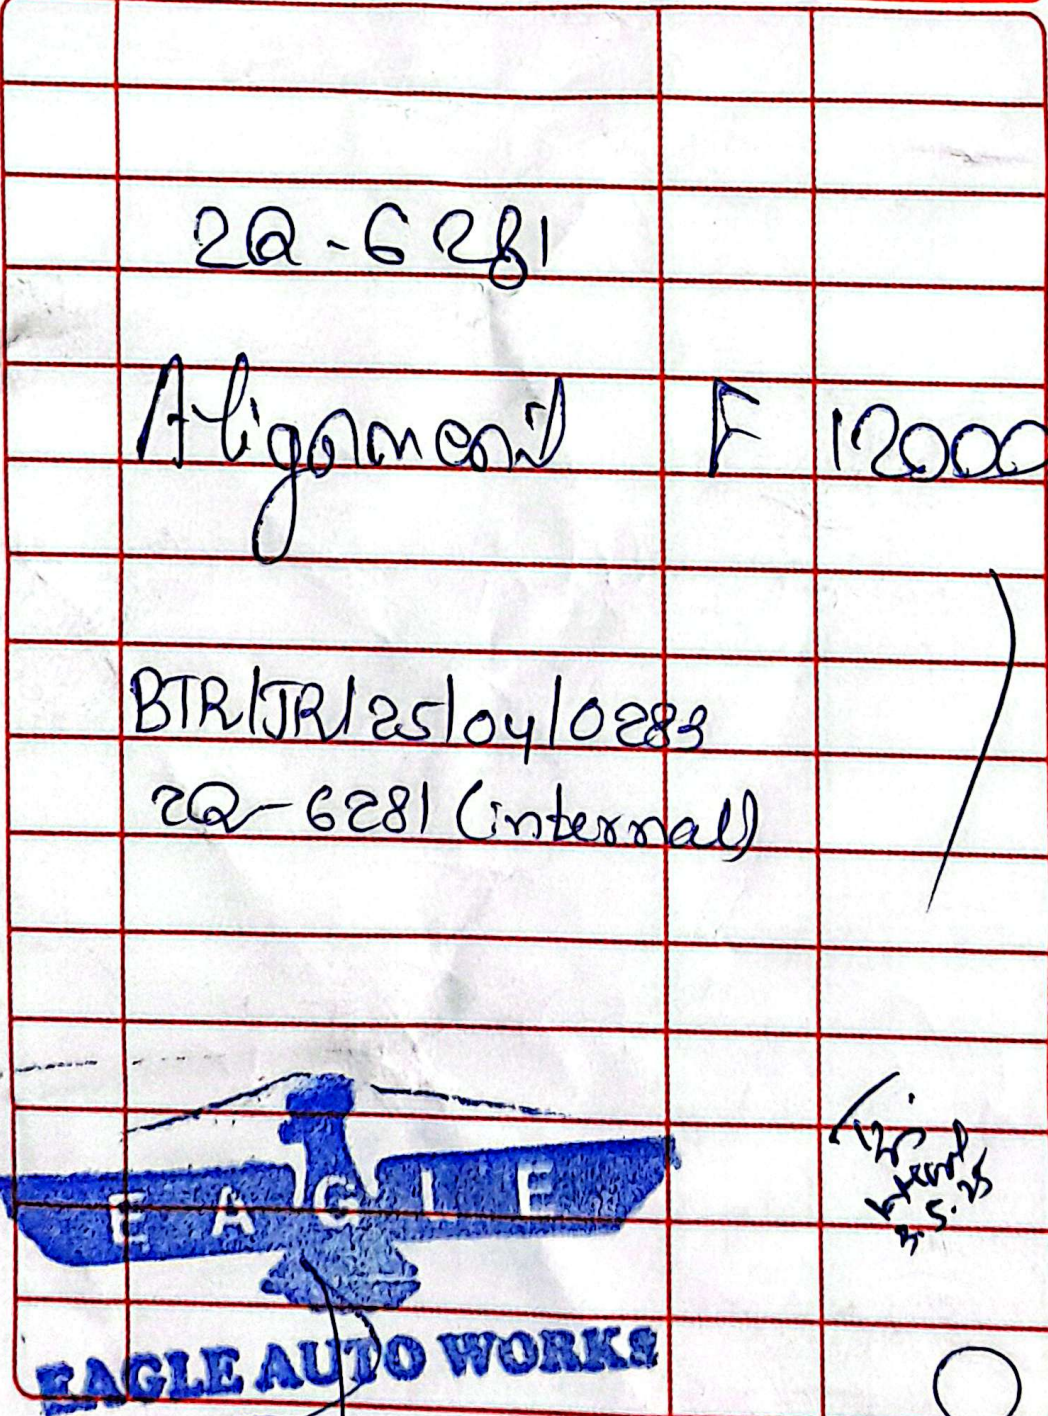 2Q-6281
Alignment F 12000
BTR/JR/25/04/0283
2Q-6281 (internal)
EAGLE
EAGLE AUTO WORKS